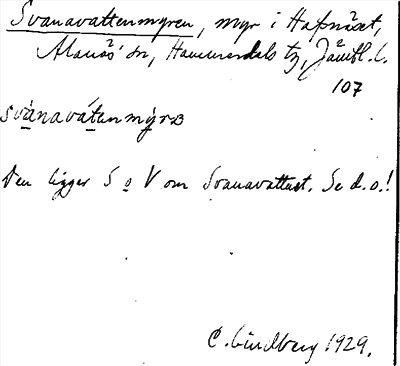 Svanavattenmyren, myr i Hafsnäset,
Alanäs sn, Hammerdals tg, Jämtl. l.
107
svànavátenmy̆rɒ
Den ligger S o V om Svanavattnet. Se d. o.!
C. Lindberg 1929.